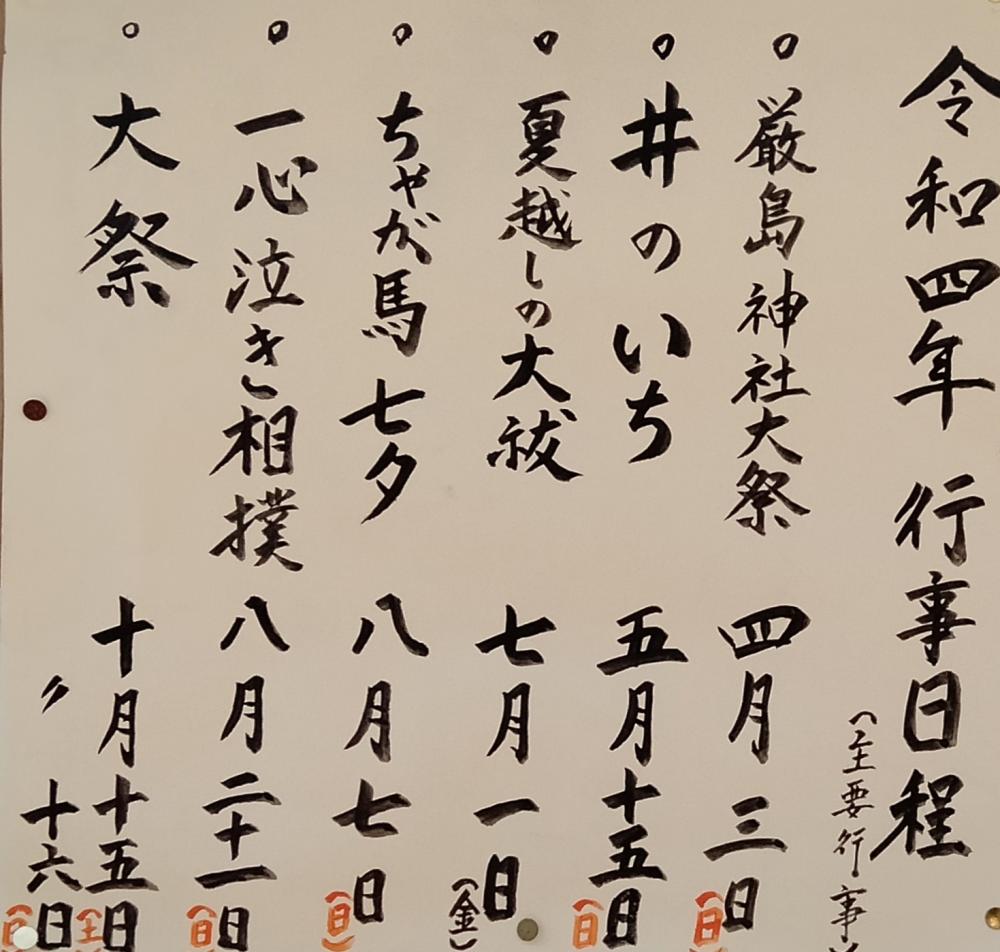 令和四年 行事日程
（主要行事）
○ 厳島神社大祭 四月三日（日）
○ 井のいち 五月十五日（日）
○ 夏越しの大祓 七月一日（金）
○ ちゃが馬七夕 八月七日（日）
○ 一心泣き相撲 八月二十一日（日）
○ 大祭 十月十五日（土）
〃 十六日（日）